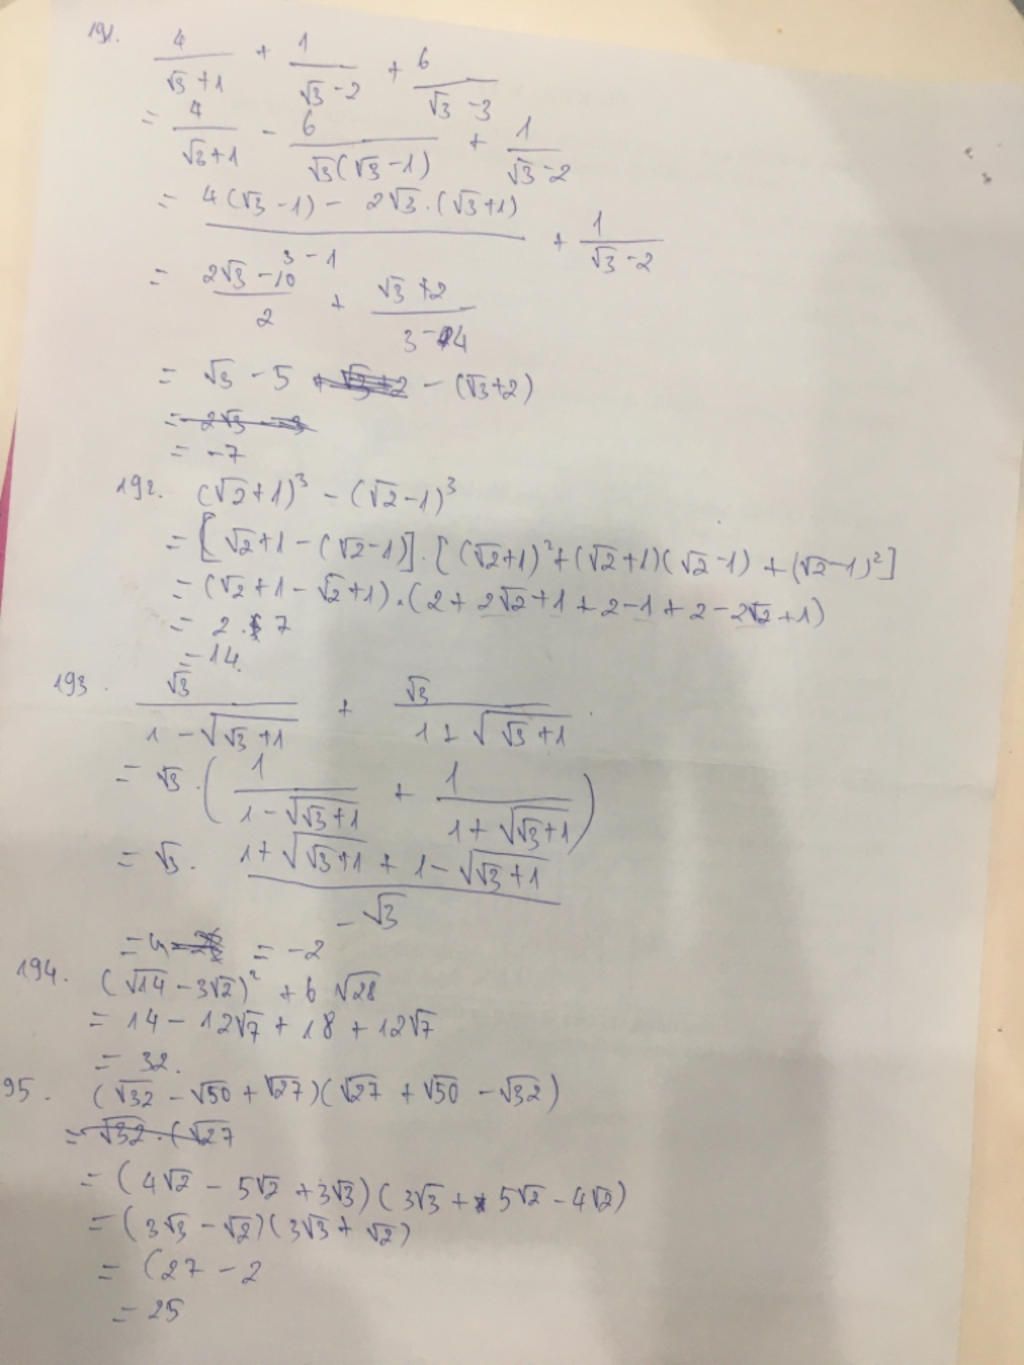 191. 4/(√3+1) + 1/(√3-2) + 6/(√3-3)
= 4/(√3+1) - 6/(√3(√3-1)) + 1/(√3-2)
= (4(√3-1) - 2√3.(√3+1))/(3-1) + 1/(√3-2)
= (2√3-10)/2 + (√3+2)/(3-4)
= √3 - 5 - (√3+2)
= -7
192. (√2+1)³ - (√2-1)³
= [√2+1-(√2-1)].[(√2+1)²+(√2+1)(√2-1)+(√2-1)²]
= (√2+1-√2+1).(2+2√2+1+2-1+2-2√2+1)
= 2.7
= 14.
193. √3/(1-√(√3+1)) + √3/(1+√(√3+1))
= √3.(1/(1-√(√3+1)) + 1/(1+√(√3+1)))
= √3.(1+√(√3+1)+1-√(√3+1))/(-√3)
= -2
194. (√14-3√2)² + 6√28
= 14 - 12√7 + 18 + 12√7
= 32.
95. (√32-√50+√27)(√27+√50-√32)
= (4√2-5√2+3√3)(3√3+5√2-4√2)
= (3√3-√2)(3√3+√2)
= (27-2
= 25